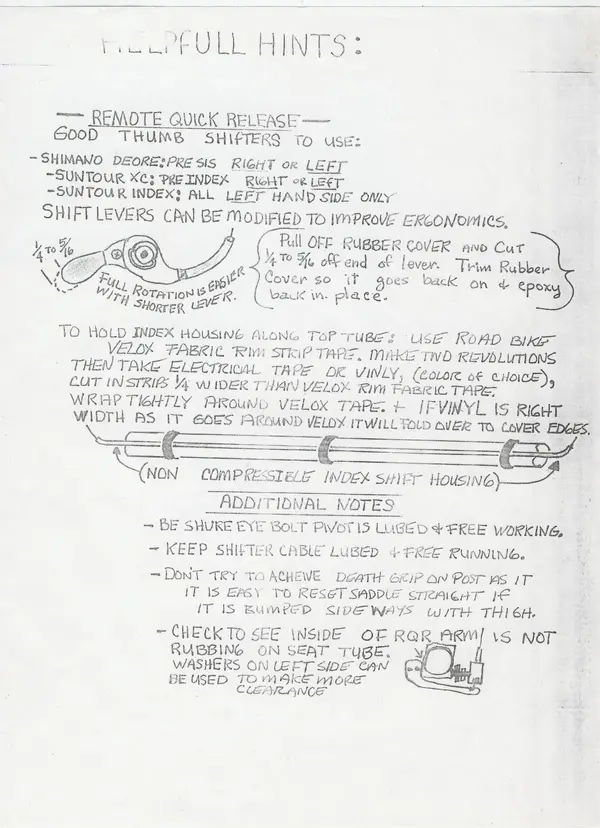 HELPFULL HINTS:
— REMOTE QUICK RELEASE —
GOOD THUMB SHIFTERS TO USE:
- SHIMANO DEORE: PRE SIS RIGHT OR LEFT
- SUNTOUR XC: PRE INDEX RIGHT OR LEFT
- SUNTOUR INDEX: ALL LEFT HAND SIDE ONLY
SHIFT LEVERS CAN BE MODIFIED TO IMPROVE ERGONOMICS.
1/4 TO 5/16
FULL ROTATION IS EASIER
WITH SHORTER LEVER.
Pull OFF RUBBER COVER AND CUT
1/4 TO 5/16 off end of lever. Trim Rubber
Cover so it goes back on & epoxy
back in place.
TO HOLD INDEX HOUSING ALONG TOP TUBE: USE ROAD BIKE
VELOX FABRIC RIM STRIP TAPE. MAKE TWO REVOLUTIONS
THEN TAKE ELECTRICAL TAPE OR VINLY, (COLOR OF CHOICE),
CUT IN STRIPS 1/4 WIDER THAN VELOX RIM FABRIC TAPE.
WRAP TIGHTLY AROUND VELOX TAPE. + IF VINYL IS RIGHT
WIDTH AS IT GOES AROUND VELOX IT WILL FOLD OVER TO COVER EDGES.
(NON COMPRESSIBLE INDEX SHIFT HOUSING)
ADDITIONAL NOTES
- BE SHURE EYE BOLT PIVOT IS LUBED & FREE WORKING.
- KEEP SHIFTER CABLE LUBED & FREE RUNNING.
- DON'T TRY TO ACHEIVE DEATH GRIP ON POST AS IT
IT IS EASY TO RESET SADDLE STRAIGHT IF
IT IS BUMPED SIDE WAYS WITH THIGH.
- CHECK TO SEE INSIDE OF RQR ARM IS NOT
RUBBING ON SEAT TUBE.
WASHERS ON LEFT SIDE CAN
BE USED TO MAKE MORE
CLEARANCE